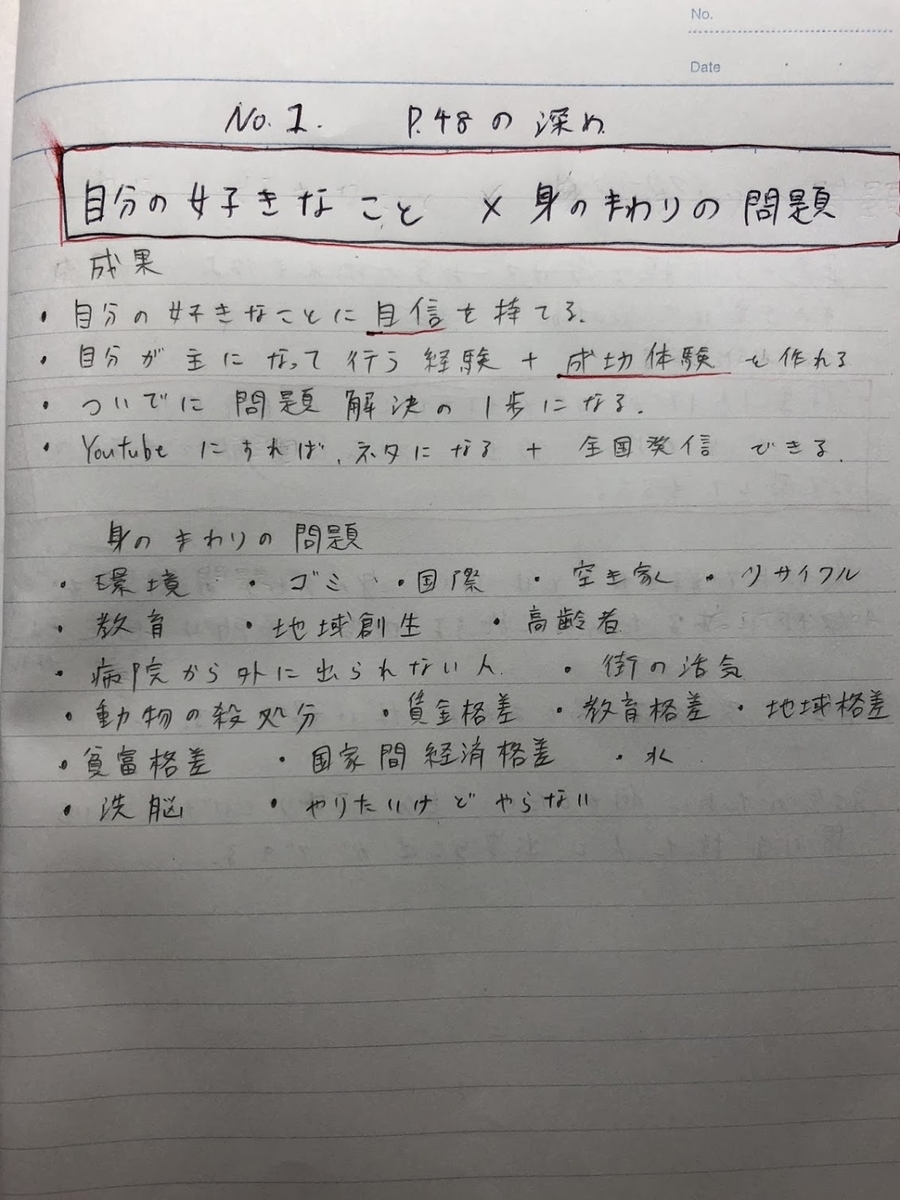 No.
Date
No.1. P.48の深め
自分の好きなこと × 身のまわりの問題
成果
・自分の好きなことに自信を持てる。
・自分が主になって行う経験 + 成功体験を作れる
・ついでに問題解決の1歩になる.
・Youtubeにすれば、ネタになる + 全国発信できる.
身のまわりの問題
・環境 ・ゴミ ・国際 ・空き家 ・リサイクル
・教育 ・地域創生 ・高齢者
・病院から外に出られない人 ・街の活気
・動物の殺処分 ・賃金格差 ・教育格差 ・地域格差
・貧富格差 ・国家間経済格差 ・水
・洗脳 ・やりたいけどやらない